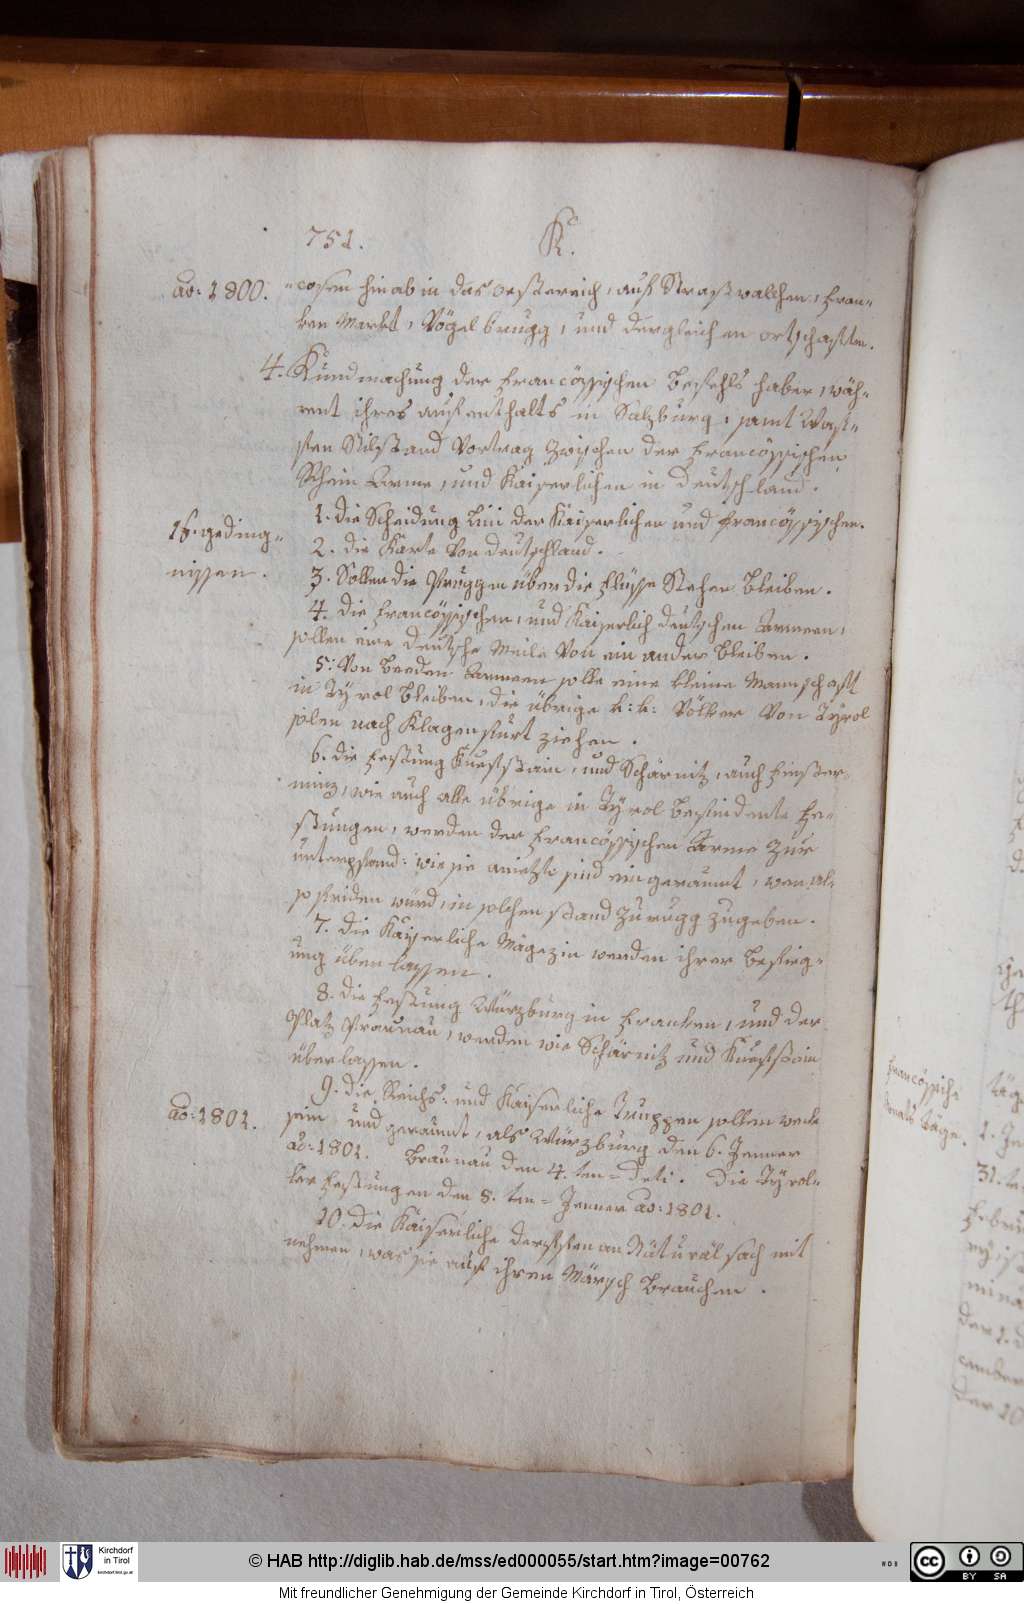 751.
K.
ao: 1800.
-cosen hinab in das oesterreich, auf Straswalchen, Fran-
ken Markt, Vögelbrugg, und dergleichen ortschaften.
4. Kundmachung der Francößischen Befehls haber, wäh-
rent ihres aufenthalts in Salzburg, samt Waf-
fen Stilstand Vortrag zwischen der Francößischen
Rhein Arme, und Kaiserlichen in deutschland.
geding-
nissen.
1. die Scheidung der Kaiserlichen und francößischen.
2. die Karte Von deutschland.
3. Sollen die Pruggen über die Flüsse Stehen bleiben.
4. die francößischen, und Kaiserlich deutschen Armeen,
sollen eine deutsche Meile Von ein ander bleiben.
5: Von beeden Armeen solle eine kleine Mannschaft
in Tÿrol bleiben, die übrige k: k: Völker Von Tÿrol
solen nach Klagenfurt ziehen.
6. die Festung Kuefstain, und Schärnitz, auch Finster-
minz, wie auch alle übrige in Tÿrol befindente Fe-
stungen, werden der Francößischen Arme zur
unterpfand: wie sie aniezto sind eingeraumt, wen al-
so Friden würd, in solchen stand zurugg zugeben.
7. die Kaÿserliche Magezin werden ihrer
ung überlassen.
8. die Festung Würzburg in Franken, und der
Platz Praunau, werden wie Schärnitz und Kuefstain
überlassen.
9. die Reichs: und Kaÿserliche Truppen sollen
ao: 1801.
sein und geraumt, als Würzburg den 6. Jenner
ao: 1801. Braunau den 4. ten = deti. die Tÿrol-
ler Festungen den 8. ten = Jenner ao: 1801.
10. die Kaiserliche derffen an Näturäl sach mit
nehmen, was sie auf ihren Märsch brauchen.
francößiche
Monath Täge.
täg
1. Je
31. te
Febru
der 10
Kirchdorf
in Tirol
© HAB http://diglib.hab.de/mss/ed000055/start.htm?image=00762
WDB
cc
BY SA
Mit freundlicher Genehmigung der Gemeinde Kirchdorf in Tirol, Österreich